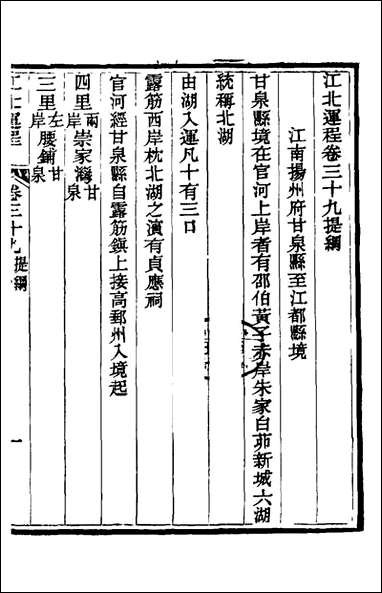 江北運程卷三十九提綱
江南揚州府甘泉縣至江都縣境
甘泉縣境在官河上岸者有邵伯黃子赤岸朱家白茆新城六湖
統稱北湖
由湖入運凡十有三口
露筋西岸枕北湖之濱有貞應祠
官河經甘泉縣自露筋鎮上接高郵州入境起
四里兩岸崇家灣甘泉
三里左岸腰鋪甘泉
江北運程 卷三十九 提綱 一